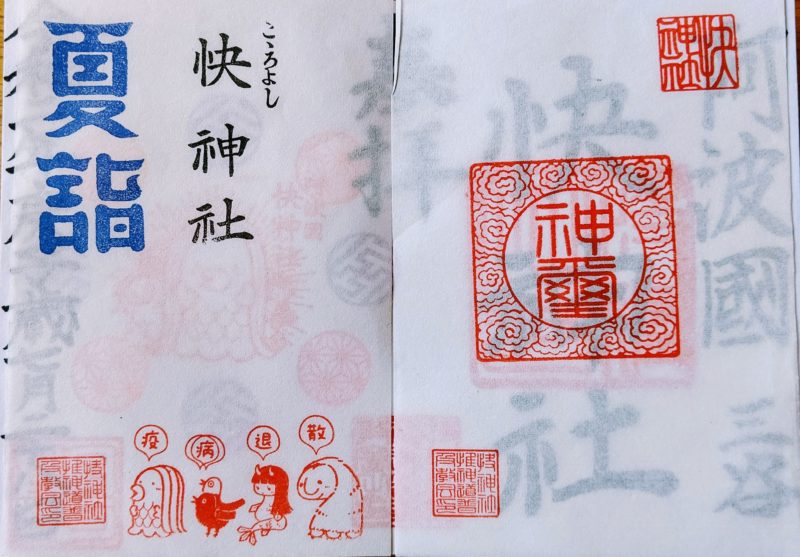 快神社
阿波國
快神社
神璽
奉拝
こゝろよし
快神社
夏詣
疫
病
退
散